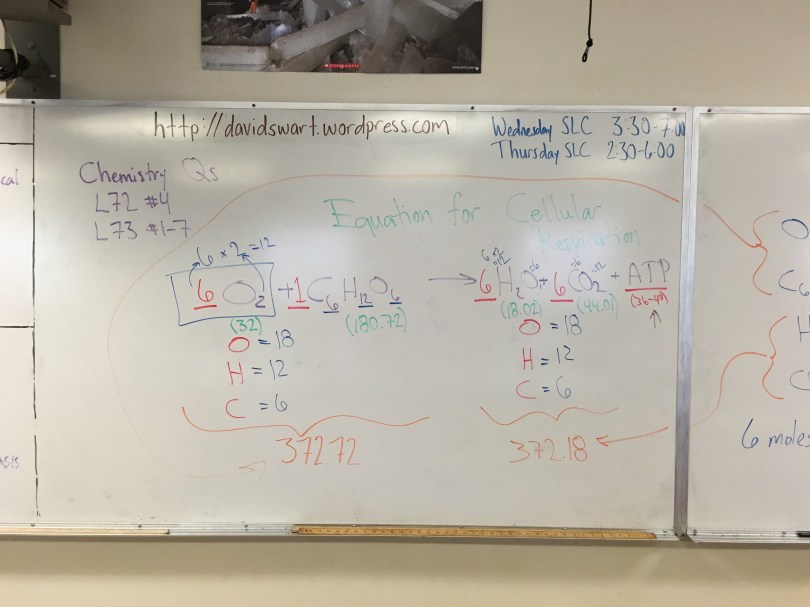 http://davidswart.wordpress.com
Wednesday SLC 3:30-7:00
Thursday SLC 2:30-6:00
Chemistry Qs
L72 #4
L73 #1-7
Equation for Cellular
Respiration
6 × 2 = 12
6 O₂ + 1 C₆H₁₂O₆ → 6 H₂O + 6 CO₂ + ATP
(32) (180.72) (18.02) (44.01) (36-40)
O = 18
H = 12
C = 6
372.72
O = 18
H = 12
C = 6
372.18
cal
O
C₆
H
C
6 moles